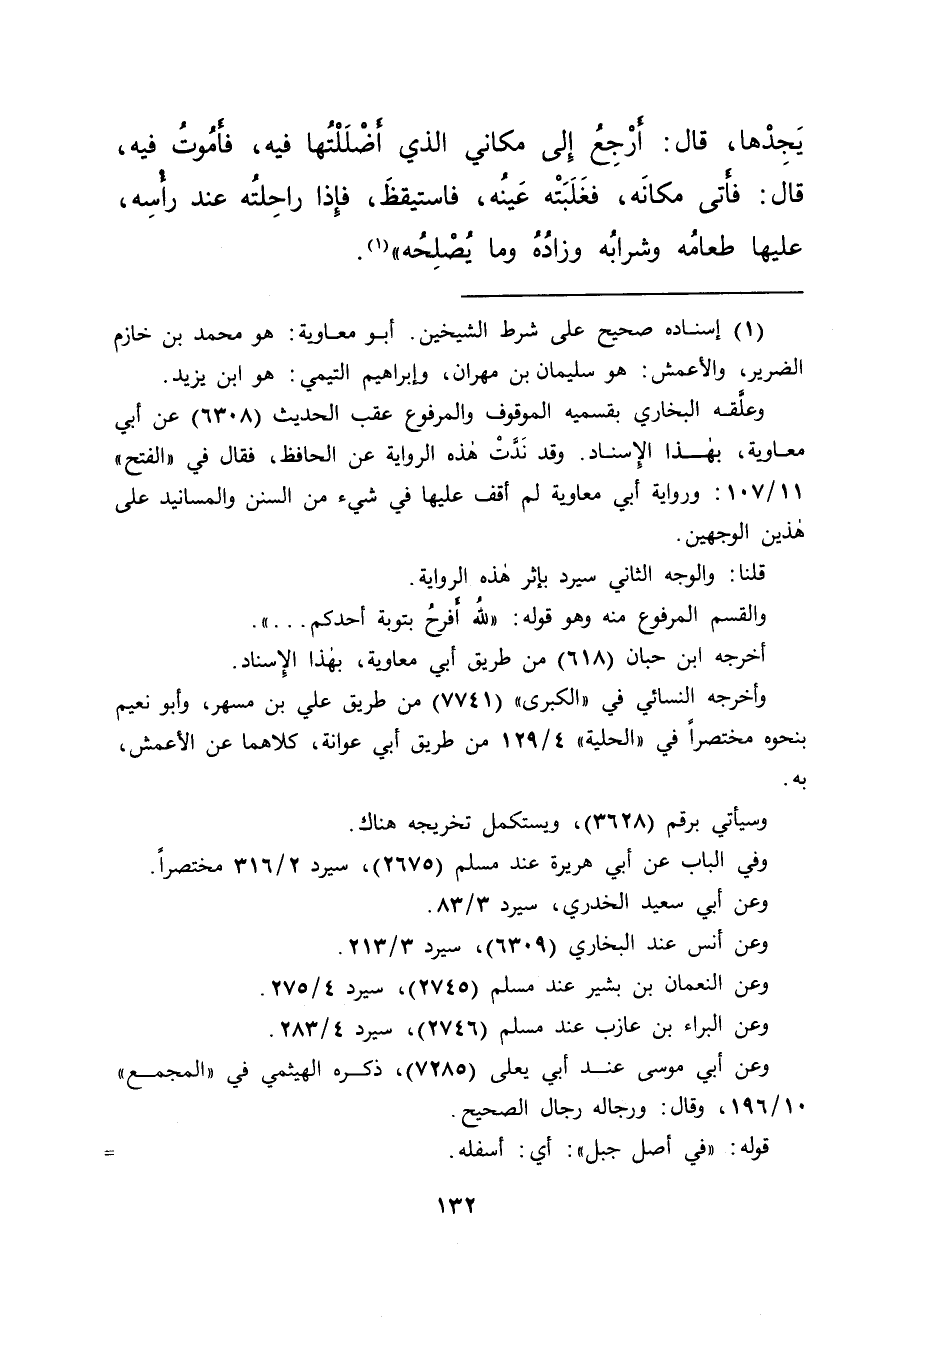 يَجِدْها، قال: أَرْجِعُ إلى مكاني الذي أَضْلَلْتُها فيه، فأَمُوتُ فيه،
قال: فأَتى مكانَه، فغَلَبَتْه عَينُه، فاستيقظَ، فإِذا راحِلتُه عند رأْسِه،
عليها طعامُه وشرابُه وزادُهُ وما يُصْلِحُه»(١).
(١) إسناده صحيح على شرط الشيخين. أبو معاوية: هو محمد بن خازم
الضرير، والأعمش: هو سليمان بن مهران، وإبراهيم التيمي: هو ابن يزيد.
وعلَّقه البخاري بقسميه الموقوف والمرفوع عقب الحديث (٦٣٠٨) عن أبي
معاوية، بهٰذا الإسناد. وقد نَدَّتْ هٰذه الرواية عن الحافظ، فقال في «الفتح»
١٠٧/١١: ورواية أبي معاوية لم أقف عليها في شيء من السنن والمسانيد على
هٰذين الوجهين.
قلنا: والوجه الثاني سيرد بإثر هٰذه الرواية.
والقسم المرفوع منه وهو قوله: «للهُ أَفرحُ بتوبة أحدكم...».
أخرجه ابن حبان (٦١٨) من طريق أبي معاوية، بهٰذا الإسناد.
وأخرجه النسائي في «الكبرى» (٧٧٤١) من طريق علي بن مسهر، وأبو نعيم
بنحوه مختصراً في «الحلية» ١٢٩/٤ من طريق أبي عوانة، كلاهما عن الأعمش،
به.
وسيأتي برقم (٣٦٢٨)، ويستكمل تخريجه هناك.
وفي الباب عن أبي هريرة عند مسلم (٢٦٧٥)، سيرد ٣١٦/٢ مختصراً.
وعن أبي سعيد الخدري، سيرد ٨٣/٣.
وعن أنس عند البخاري (٦٣٠٩)، سيرد ٢١٣/٣.
وعن النعمان بن بشير عند مسلم (٢٧٤٥)، سيرد ٢٧٥/٤.
وعن البراء بن عازب عند مسلم (٢٧٤٦)، سيرد ٢٨٣/٤.
وعن أبي موسى عند أبي يعلى (٧٢٨٥)، ذكره الهيثمي في «المجمع»
١٩٦/١٠، وقال: ورجاله رجال الصحيح.
قوله: «في أصل جبل»: أي: أسفله. =
١٣٢